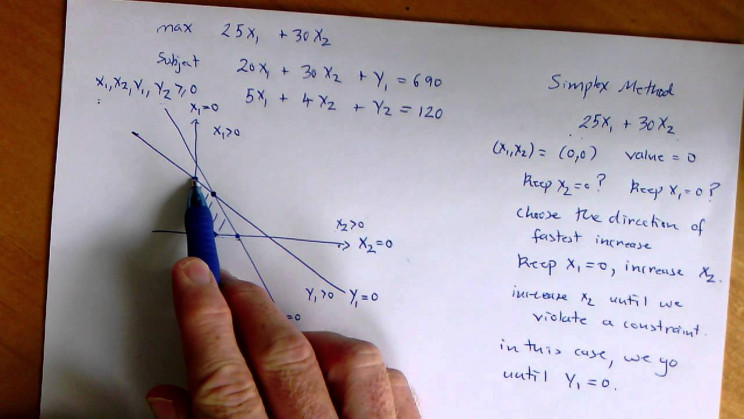 max 25X₁ + 30X₂
Subject 20X₁ + 30X₂ + Y₁ = 690
X₁, X₂, Y₁, Y₂ ≥ 0 5X₁ + 4X₂ + Y₂ = 120
X₁=0
X₁>0
X₂>0
X₂=0
Y₁>0 Y₁=0
=0
Simplex Method
25X₁ + 30X₂
(X₁,X₂) = (0,0) value = 0
Keep X₂=0? Keep X₁=0?
choose the direction of
fastest increase
Keep X₁=0, increase X₂.
increase X₂ until we
violate a constraint.
in this case, we go
until Y₁=0.